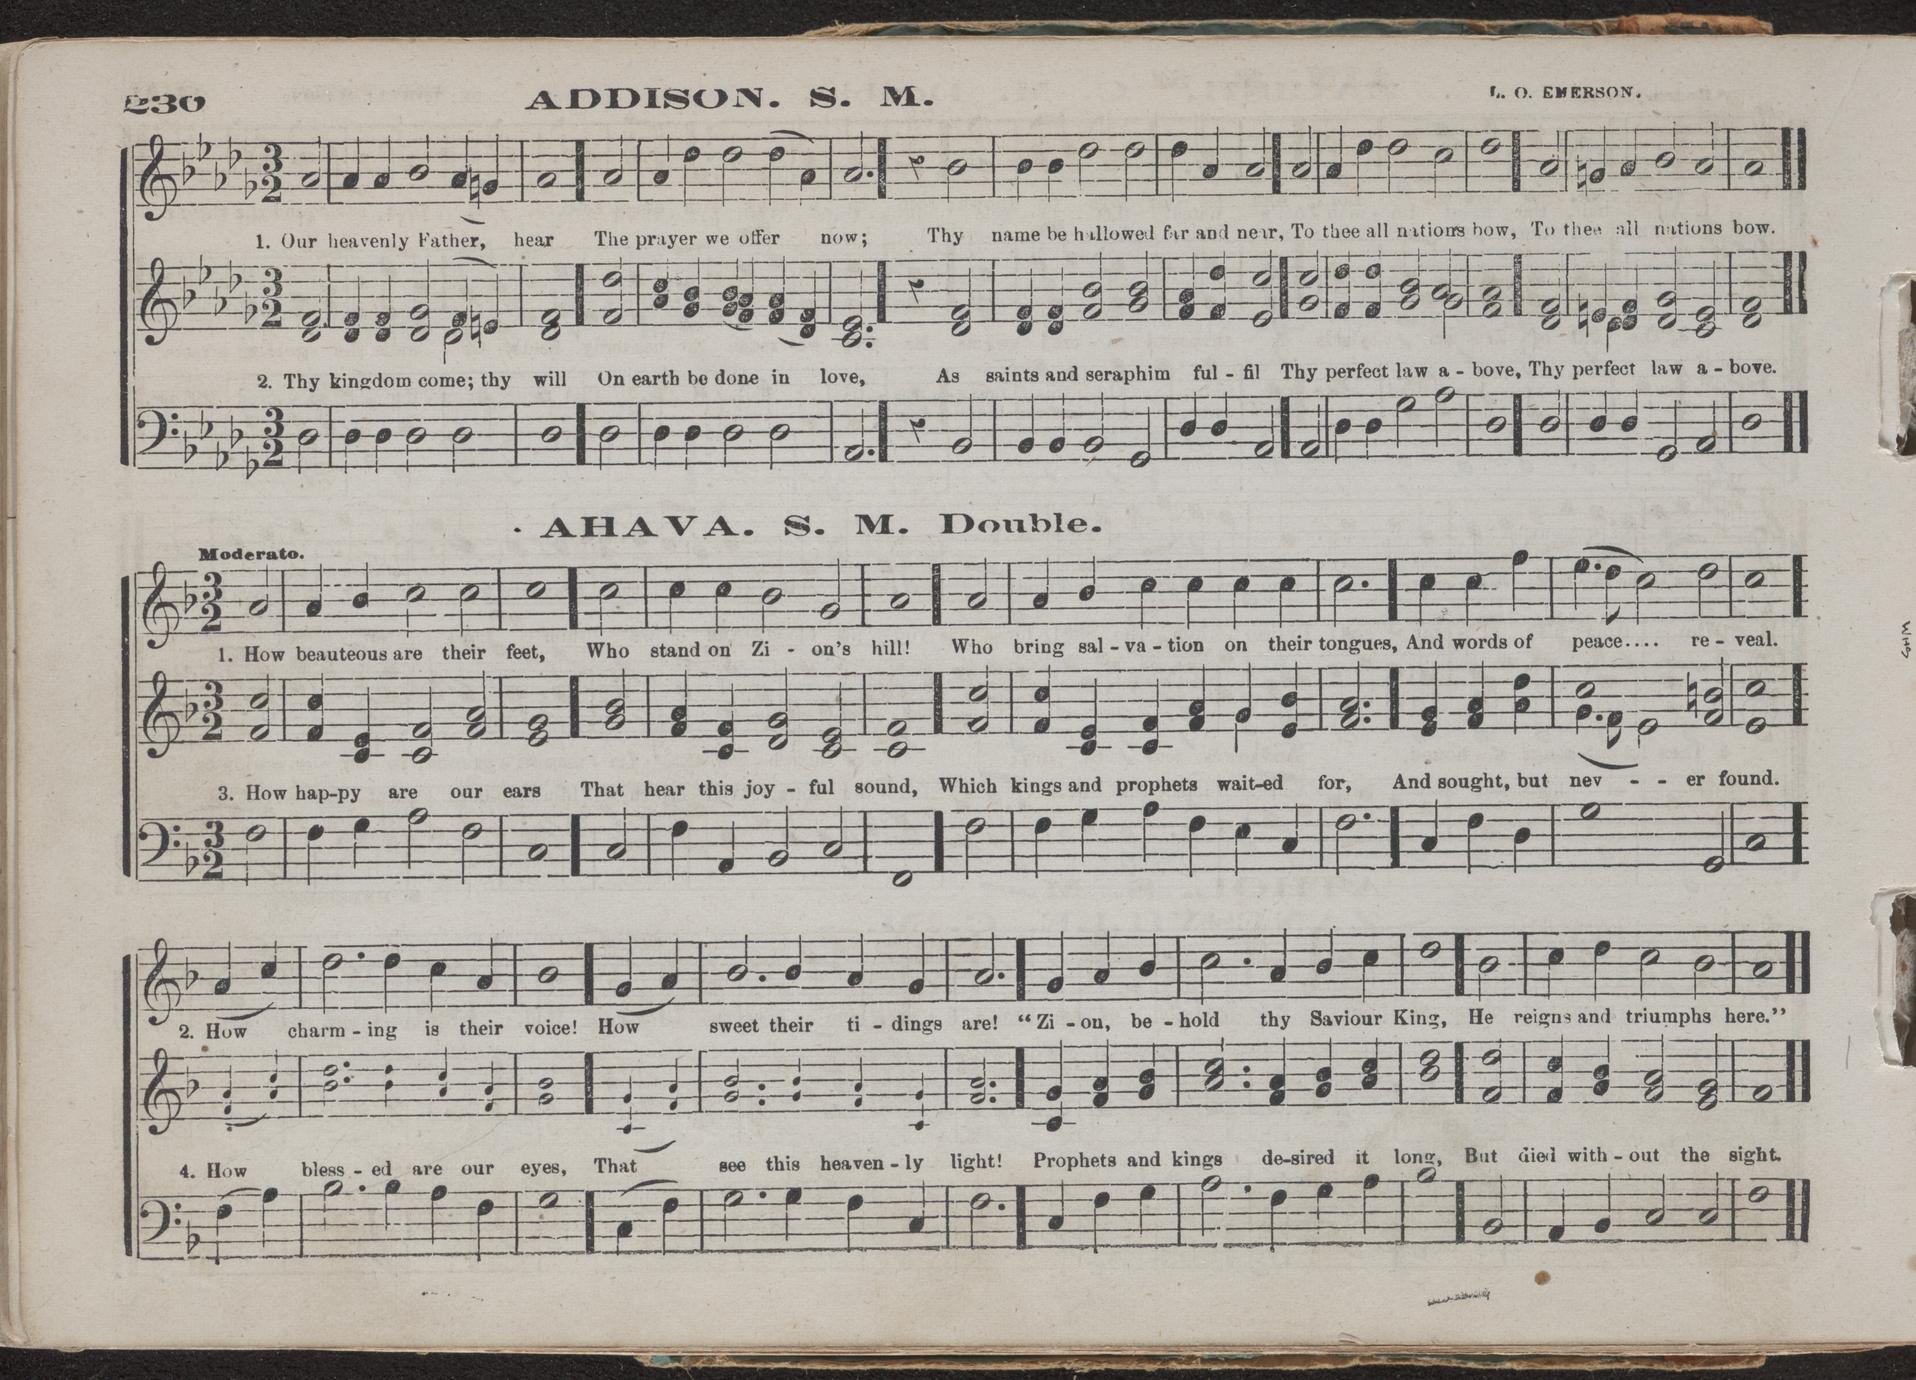 230 ADDISON. S. M. L. O. EMERSON.
1. Our heavenly Father, hear The prayer we offer now; Thy name be hallowed far and near, To thee all nations bow, To thee all nations bow.
2. Thy kingdom come; thy will On earth be done in love, As saints and seraphim ful - fil Thy perfect law a - bove, Thy perfect law a - bove.
AHAVA. S. M. Double.
Moderato.
1. How beauteous are their feet, Who stand on Zi - on's hill! Who bring sal - va - tion on their tongues, And words of peace.... re - veal.
3. How hap-py are our ears That hear this joy - ful sound, Which kings and prophets wait-ed for, And sought, but nev - - er found.
2. How charm - ing is their voice! How sweet their ti - dings are! "Zi - on, be - hold thy Saviour King, He reigns and triumphs here."
4. How bless - ed are our eyes, That see this heaven - ly light! Prophets and kings de-sired it long, But died with - out the sight.